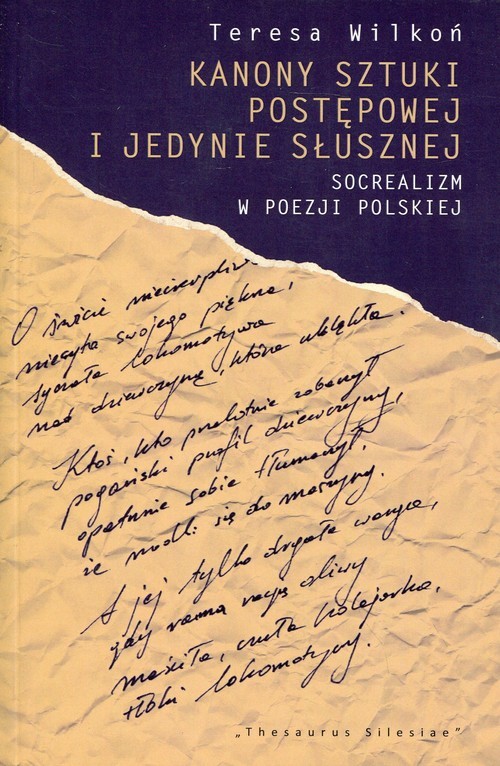 Teresa Wilkoń
KANONY SZTUKI
POSTĘPOWEJ
I JEDYNIE SŁUSZNEJ
SOCREALIZM
W POEZJI POLSKIEJ
O świcie niecierpliwa
niesyta swojego piękna,
syczała lokomotywa
nad dziewczyną, która uklękła.
Ktoś, kto przelotnie zobaczył
pogański profil dziewczyny,
opatrznie sobie tłumaczył,
że modli się do maszyny.
A jej tylko drgała warga,
gdy ranną rosą oliwy
maściła, czuła kolejarka,
tłoki lokomotywy.
„Thesaurus Silesiae"